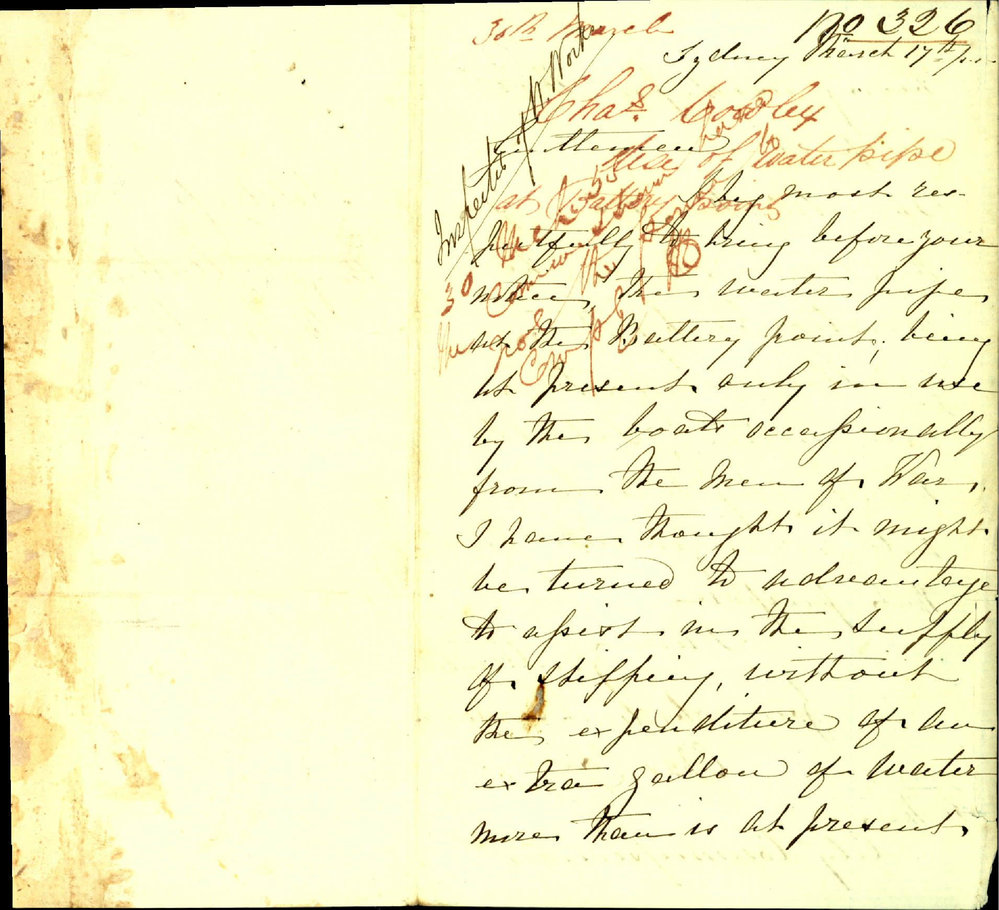 30th March
No 326
Sydney March 17th
Chas. Cowley
Gentlemen
Use of Water pipe
at Battery Point
Inspector of W. Works
I beg most res-
pectfully to bring before your
notice, the water pipe
at the Battery point, being
at present only in use
by the boats occasionally
from the Men of War,
I have thought it might
be turned to advantage
to assist in the supply
of shipping, without
the expenditure of an
extra gallon of water
more than is at present